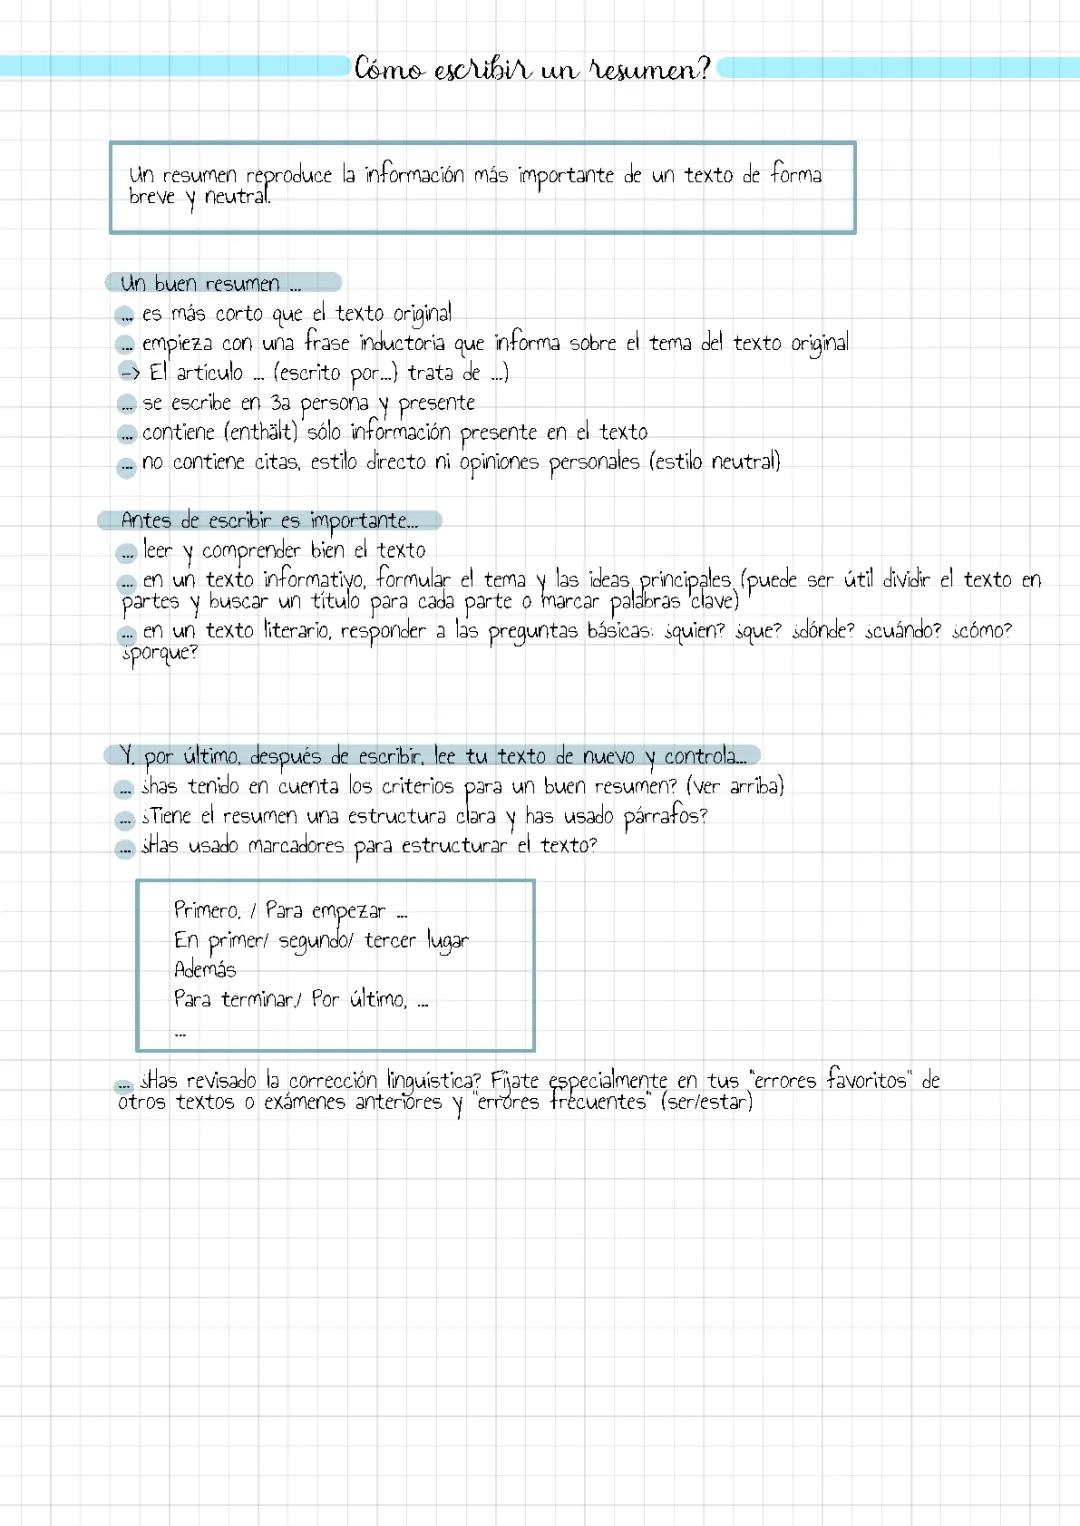 Cómo escribir un resumen?
Un resumen reproduce la información más importante de un texto de forma
breve y neutral.
Un buen resumen ...
... es más corto que el texto original
... empieza con una frase inductoria que informa sobre el tema del texto original
-> El artículo ... (escrito por...) trata de ...)
... se escribe en 3a persona y presente
... contiene (enthält) sólo información presente en el texto
... no contiene citas, estilo directo ni opiniones personales (estilo neutral)
Antes de escribir es importante...
... leer y comprender bien el texto
... en un texto informativo, formular el tema y las ideas principales (puede ser útil dividir el texto en
partes y buscar un título para cada parte o marcar palabras clave)
... en un texto literario, responder a las preguntas básicas: ¿quien? ¿que? ¿dónde? ¿cuándo? ¿cómo?
¿porque?
Y, por último, después de escribir, lee tu texto de nuevo y controla...
... ¿has tenido en cuenta los criterios para un buen resumen? (ver arriba)
... ¿Tiene el resumen una estructura clara y has usado párrafos?
... ¿Has usado marcadores para estructurar el texto?
Primero, / Para empezar ...
En primer/ segundo/ tercer lugar
Además
Para terminar/ Por último, ...
...
... ¿Has revisado la corrección linguística? Fijate especialmente en tus "errores favoritos" de
otros textos o exámenes anteriores y "errores frecuentes" (ser/estar)